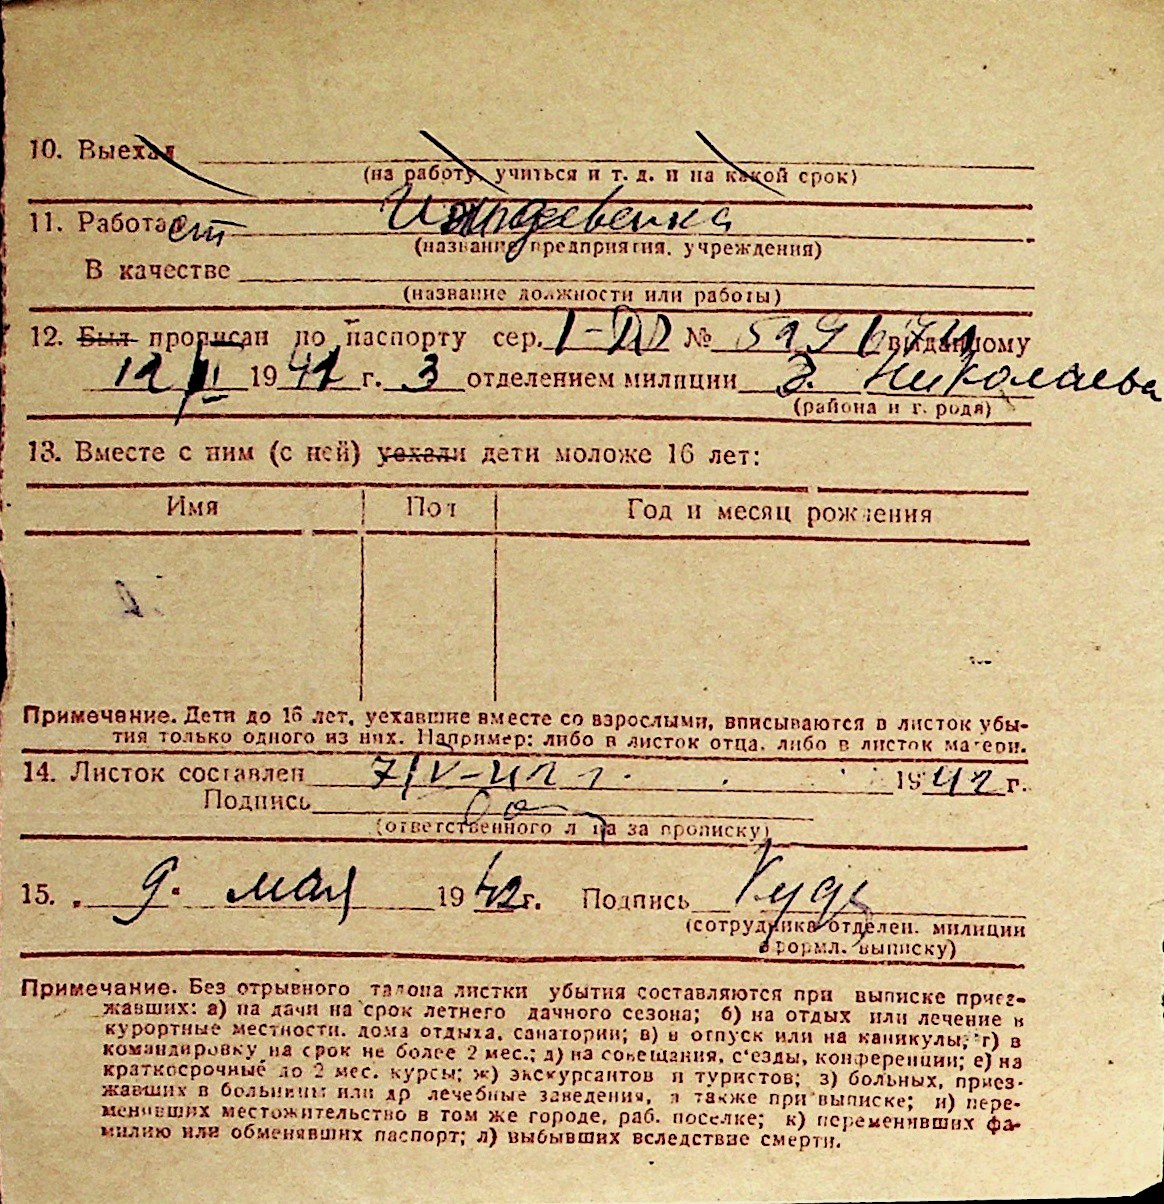 10. Выехал
(на работу, учиться и т. д. и на какой срок)
11. Работает Иждивенка
(название предприятия, учреждения)
В качестве
(название должности или работы)
12. Был прописан по паспорту сер. № выданному
1942 г. 3 отделением милиции г. Николаева
(района и г. родя)
13. Вместе с ним (с ней) уехали дети моложе 16 лет:
Имя Пол Год и месяц рождения
Примечание. Дети до 16 лет, уехавшие вместе со взрослыми, вписываются в листок убы-
тия только одного из них. Например: либо в листок отца, либо в листок матери.
14. Листок составлен 7/V-42 г. 1942 г.
Подпись
(ответственного лица за прописку)
15. 9. мая 1942 г. Подпись
(сотрудника отделен. милиции
оформл. выписку)
Примечание. Без отрывного талона листки убытия составляются при выписке приез-
жавших: а) на дачи на срок летнего дачного сезона; б) на отдых или лечение в
курортные местности, дома отдыха, санатории; в) в отпуск или на каникулы; г) в
командировку на срок не более 2 мес.; д) на совещания, с'езды, конференции; е) на
краткосрочные до 2 мес. курсы; ж) экскурсантов и туристов; з) больных, приез-
жавших в больницы или др лечебные заведения, а также при выписке; и) пере-
менивших местожительство в том же городе, раб. поселке; к) переменивших фа-
милию или обменявших паспорт; л) выбывших вследствие смерти.